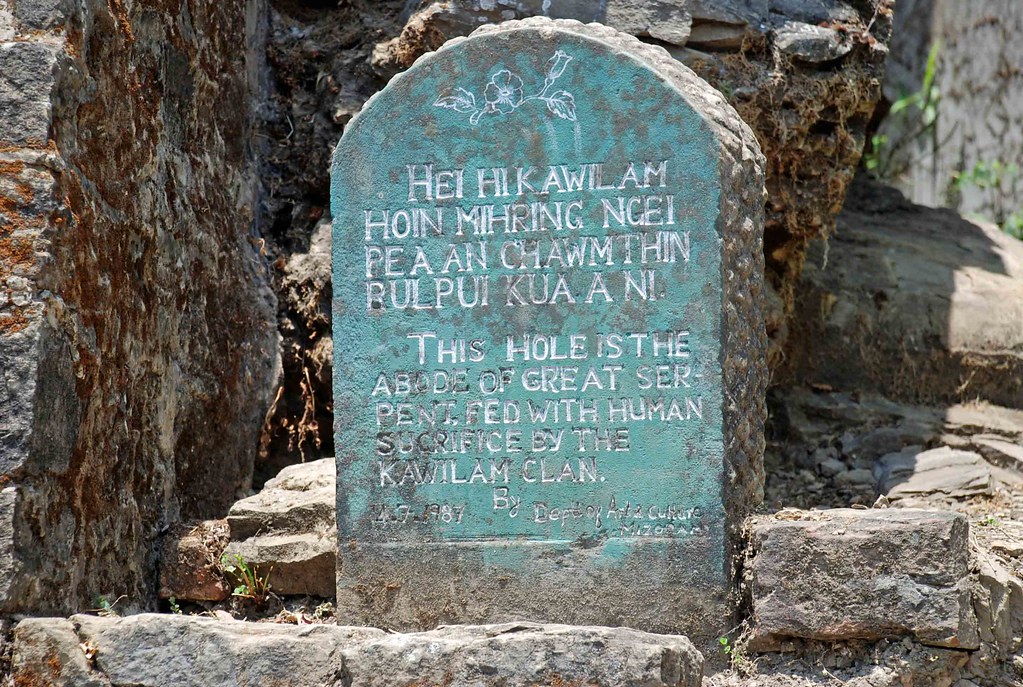 HEI HI KAWILAM
HOIN MIHRING NGEI
PEA AN CHAWMTHIN
RULPUI KUA A NI.
THIS HOLE IS THE
ABODE OF GREAT SER-
PENT, FED WITH HUMAN
SUCRIFICE BY THE
KAWILAM CLAN.
By
7-1987 Dept of Art & Culture
MIZORAM